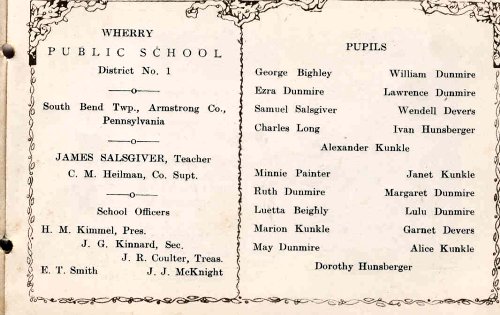 WHERRY
PUBLIC SCHOOL
District No. 1
South Bend Twp., Armstrong Co.,
Pennsylvania
JAMES SALSGIVER, Teacher
C. M. Heilman, Co. Supt.
School Officers
H. M. Kimmel, Pres.
J. G. Kinnard, Sec.
J. R. Coulter, Treas.
E. T. Smith J. J. McKnight
PUPILS
George Bighley William Dunmire
Ezra Dunmire Lawrence Dunmire
Samuel Salsgiver Wendell Devers
Charles Long Ivan Hunsberger
Alexander Kunkle
Minnie Painter Janet Kunkle
Ruth Dunmire Margaret Dunmire
Luetta Beighly Lulu Dunmire
Marion Kunkle Garnet Devers
May Dunmire Alice Kunkle
Dorothy Hunsberger